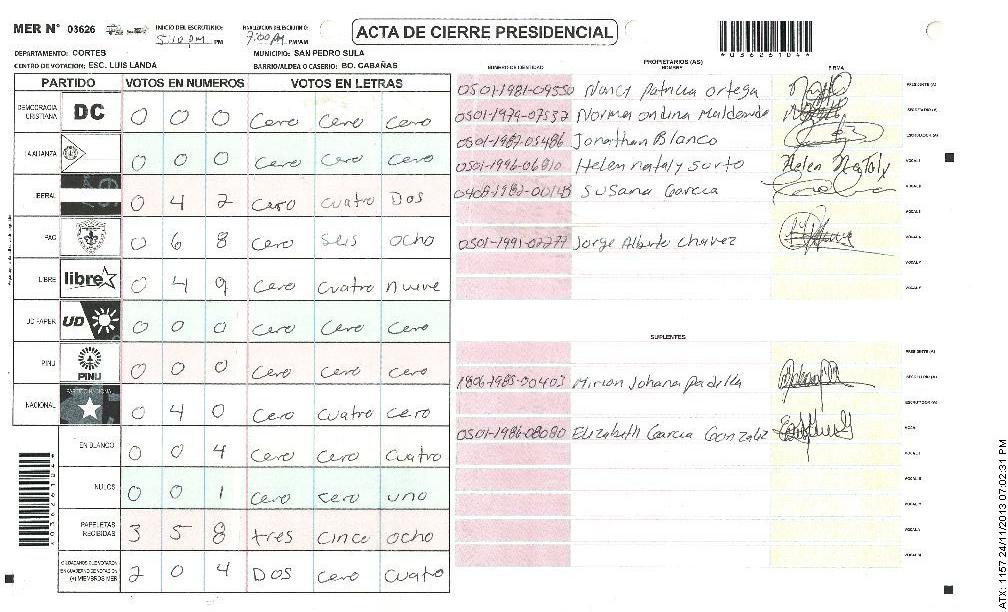 MER Nº 03626 INICIO DEL ESCRUTINIO: 5:10 PM PM FINALIZACION DEL ESCRUTINIO: 7:00 PM PM/AM ACTA DE CIERRE PRESIDENCIAL
DEPARTAMENTO: CORTES MUNICIPIO: SAN PEDRO SULA
CENTRO DE VOTACION: ESC. LUIS LANDA BARRIO/ALDEA O CASERIO: BO. CABAÑAS
PARTIDO VOTOS EN NUMEROS VOTOS EN LETRAS
DEMOCRACIA CRISTIANA DC 0 0 0 Cero Cero Cero
LA ALIANZA 0 0 0 Cero Cero Cero
LIBERAL 0 4 2 Cero cuatro Dos
PAC 0 6 8 Cero seis ocho
LIBRE libre 0 4 9 Cero Cuatro nueve
UD FAPER UD 0 0 0 Cero Cero Cero
PINU PINU 0 0 0 Cero Cero Cero
NACIONAL 0 4 0 Cero Cuatro Cero
EN BLANCO 0 0 4 Cero Cero Cuatro
NULOS 0 0 1 Cero cero uno
PAPELETAS RECIBIDAS 3 5 8 tres cinco ocho
CIUDADANOS QUE VOTARON EN CUADERNO DE VOTACION (+) MIEMBROS MER 2 0 4 DOS Cero Cuatro
*03626104*
PROPIETARIOS (AS)
NUMERO DE IDENTIDAD NOMBRE FIRMA
0501-1981-09550 Nancy Patricia Ortega PRESIDENTE (A)
0501-1979-07537 Norma ondina Maldonado SECRETARIO (A)
0501-1987-05486 Jonathan Blanco ESCRUTADOR (A)
0501-1996-06810 Helen nataly Sorto Helen Nataly VOCAL I
0408-1982-00143 Susana Garcia VOCAL II
VOCAL III
0501-1991-02277 Jorge Alberto Chavez VOCAL IV
VOCAL V
VOCAL VI
SUPLENTES
PRESIDENTE (A)
1806-1985-00403 Mirian Johana Padilla SECRETARIO (A)
ESCRUTADOR (A)
0501-1986-08080 Elizabeth Garcia Gonzalez VOCAL I
VOCAL II
VOCAL III
VOCAL IV
VOCAL V
VOCAL VI
*03626104*
ATX: 1157 24/11/2013 07:02:31 PM